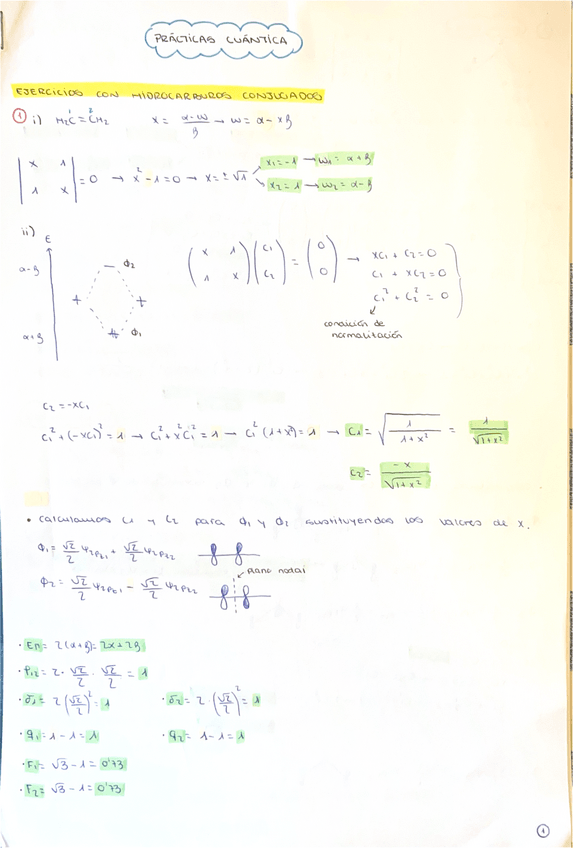 PRÁCTICAS CUÁNTICA
EJERCICIOS CON HIDROCARBUROS CONJUGADOS
① i) H₂C¹=²CH₂ x = (α-w)/β → w = α - xβ
|x 1; 1 x| = 0 → x² - 1 = 0 → x = ±√1
x₁ = -1 → w₁ = α+β
x₂ = 1 → w₂ = α-β
ii) E
α-β
Φ₂
α+β
Φ₁
(x 1; 1 x)(c₁; c₂) = (0; 0) → xc₁ + c₂ = 0
c₁ + xc₂ = 0
c₁² + c₂² = 0
condición de
normalitación
c₂ = -xc₁
c₁² + (-xc₁)² = 1 → c₁² + x²c₁² = 1 → c₁²(1+x²) = 1 → c₁ = √(1/(1+x²)) = 1/√(1+x²)
c₂ = -x/√(1+x²)
• calculamos c₁ y c₂ para Φ₁ y Φ₂ sustituyendos los valores de x.
Φ₁ = √2/2 Ψ2pz₁ + √2/2 Ψ2pz₂
plano nodal
Φ₂ = √2/2 Ψ2pz₁ - √2/2 Ψ2pz₂
· Eπ = 2(α+β) = 2α+2β
· P₁₂ = 2 · √2/2 · √2/2 = 1
· σ₁ = 2(√2/2)² = 1 · σ₂ = 2 · (√2/2)² = 1
· q₁ = 1-1 = 1 · q₂ = 1-1 = 1
· F₁ = √3 - 1 = 0'73
· F₂ = √3 - 1 = 0'73
①